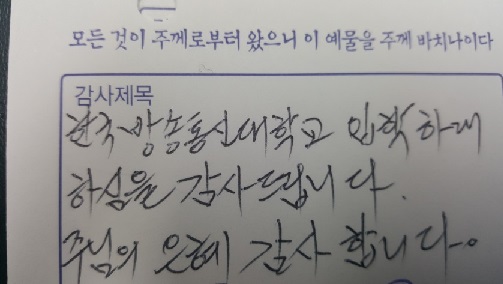 모든 것이 주께로부터 왔으니 이 예물을 주께 바치나이다
감사제목
한국방송통신대학교 입학하게
하심을 감사드립니다.
주님의 은혜 감사합니다.